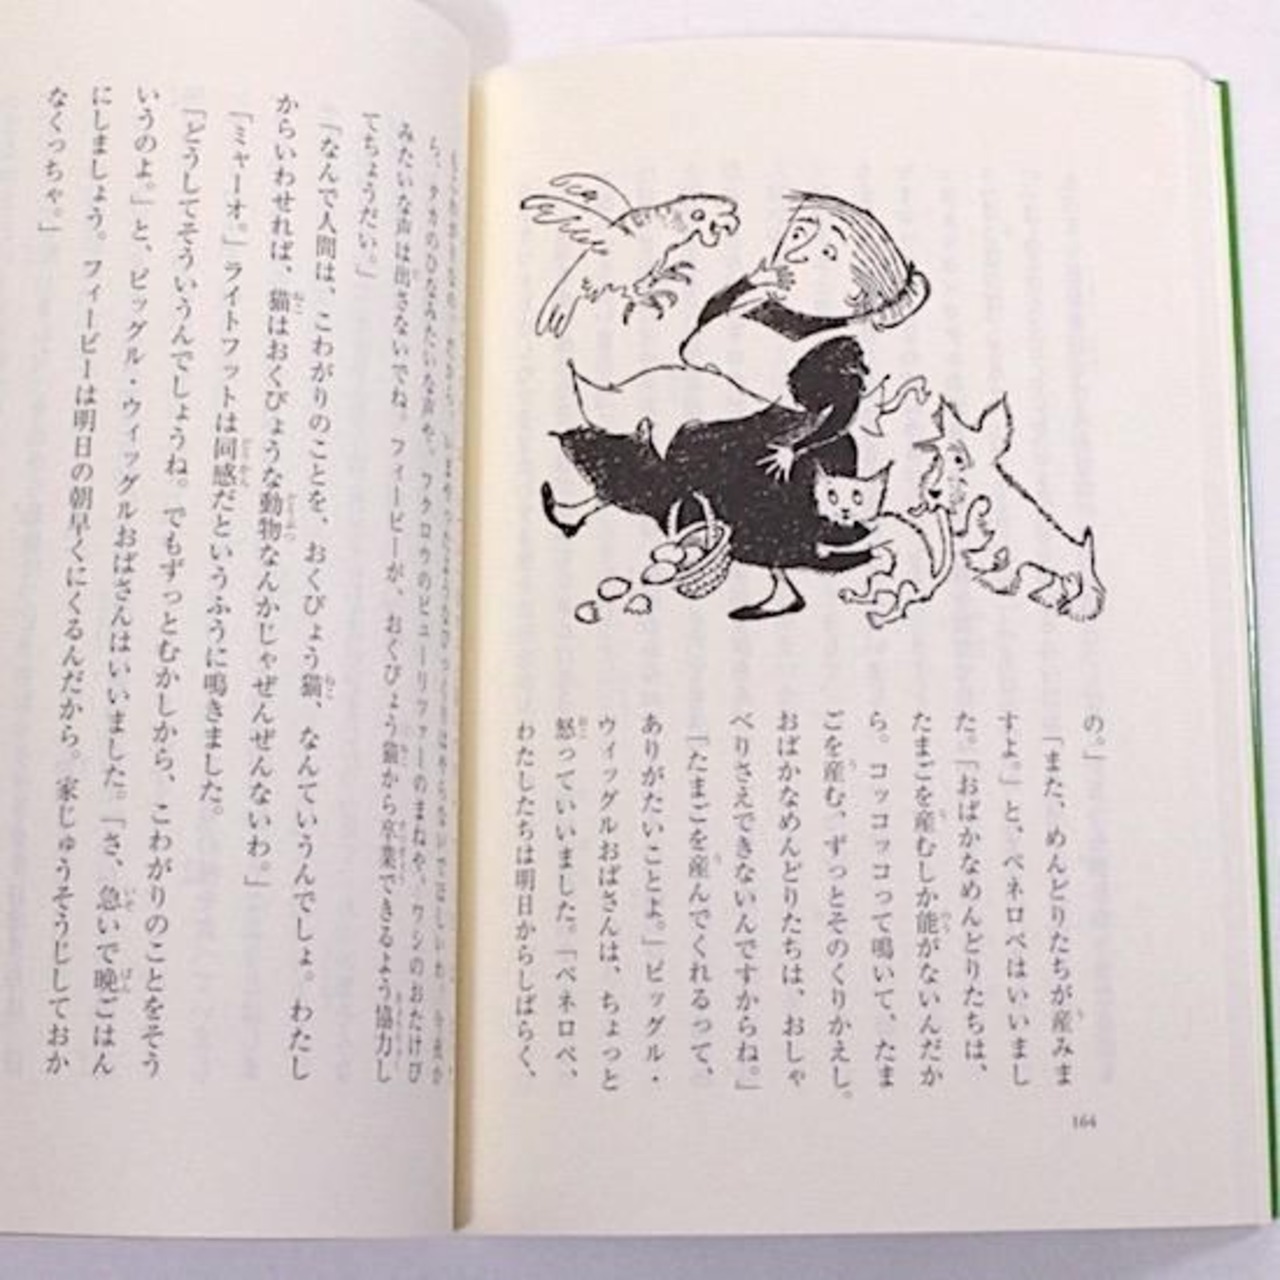 の。」
「また、めんどりたちが産みま
すよ。」と、ペネロペはいいまし
た。「おばかなめんどりたちは、
たまごを産むしか能がないんだか
ら。コッコッコって鳴いて、たま
ごを産む、ずっとそのくりかえし。
おばかなめんどりたちは、おしゃ
べりさえできないんですからね。」
「たまごを産んでくれるって、
ありがたいことよ。」ピッグル・
ウィッグルおばさんは、ちょっと
怒っていいました。「ペネロペ、
わたしたちは明日からしばらく、
164
ら、タカのひなみたいな声や、フクロウのヒューリファーのまねや、ワシのおたけび
みたいな声は出さないでね。フィービーが、おくびょう猫から卒業できるよう協力し
てちょうだい。」
「なんで人間は、こわがりのことを、おくびょう猫、なんていうんでしょ。わたし
からいわせれば、猫はおくびょうな動物なんかじゃぜんぜんないわ。」
「ミャーオ。」ライトフットは同感だというふうに鳴きました。
「どうしてそういうんでしょうね。でもずっとむかしから、こわがりのことをそう
いうのよ。」と、ピッグル・ウィッグルおばさんはいいました。「さ、急いで晩ごはん
にしましょう。フィービーは明日の朝早くにくるんだから。家じゅうそうじしておか
なくっちゃ。」